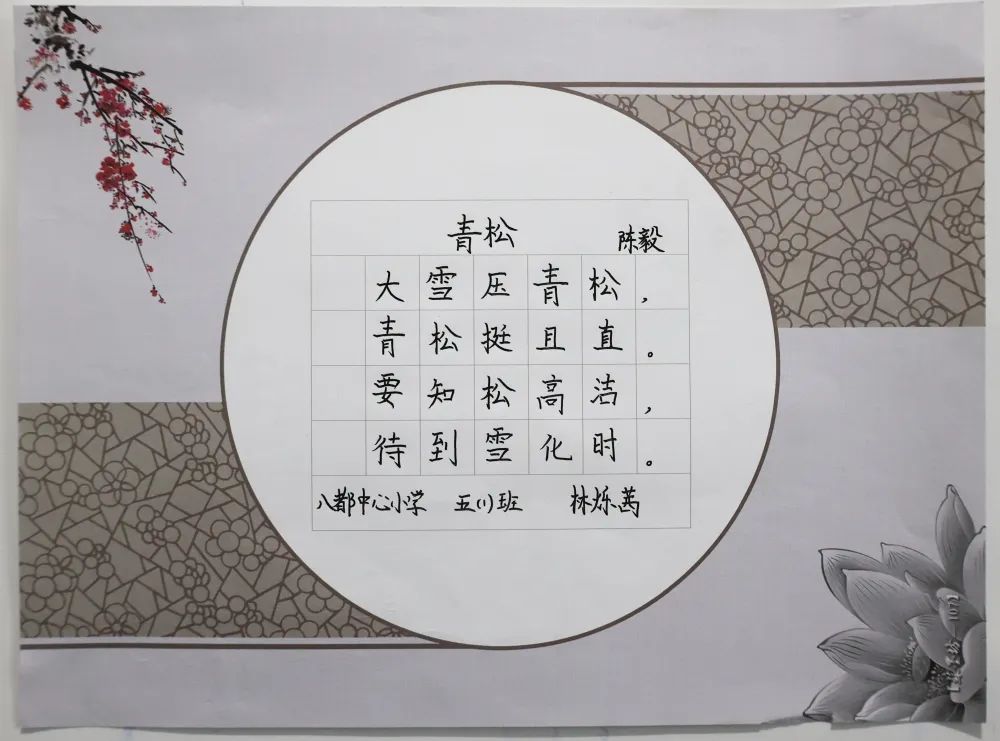 青松 陈毅
大雪压青松,
青松挺且直。
要知松高洁,
待到雪化时。
八都中心小学 五(1)班 林烁茜